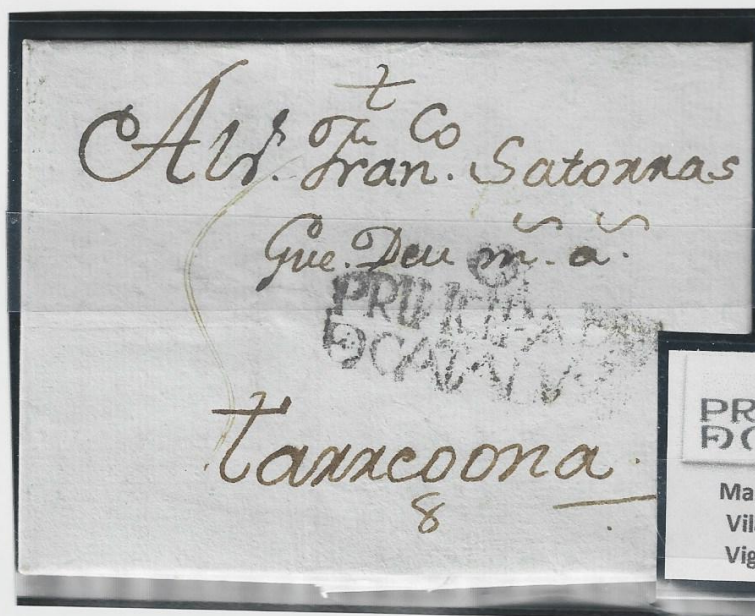 t
Al Sr. Fran.co Satorras
Gue. Deu m.s a.s
PRINCIPADO
D CATALVÑA
Tarrecoona.
8
PR
D C
Ma
Vil
Vig